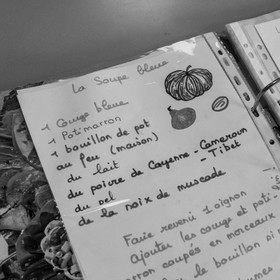 La Soupe bleue
1 Courge bleue
1 Potimarron
1 bouillon de pot
au feu (maison)
du lait
du poivre de Cayenne - Cameroun
- Tibet
du sel
de la noix de muscade
Faire revenir 1 oignon
Ajouter les courge et poti-
marron coupés en morceaux
le bouillon